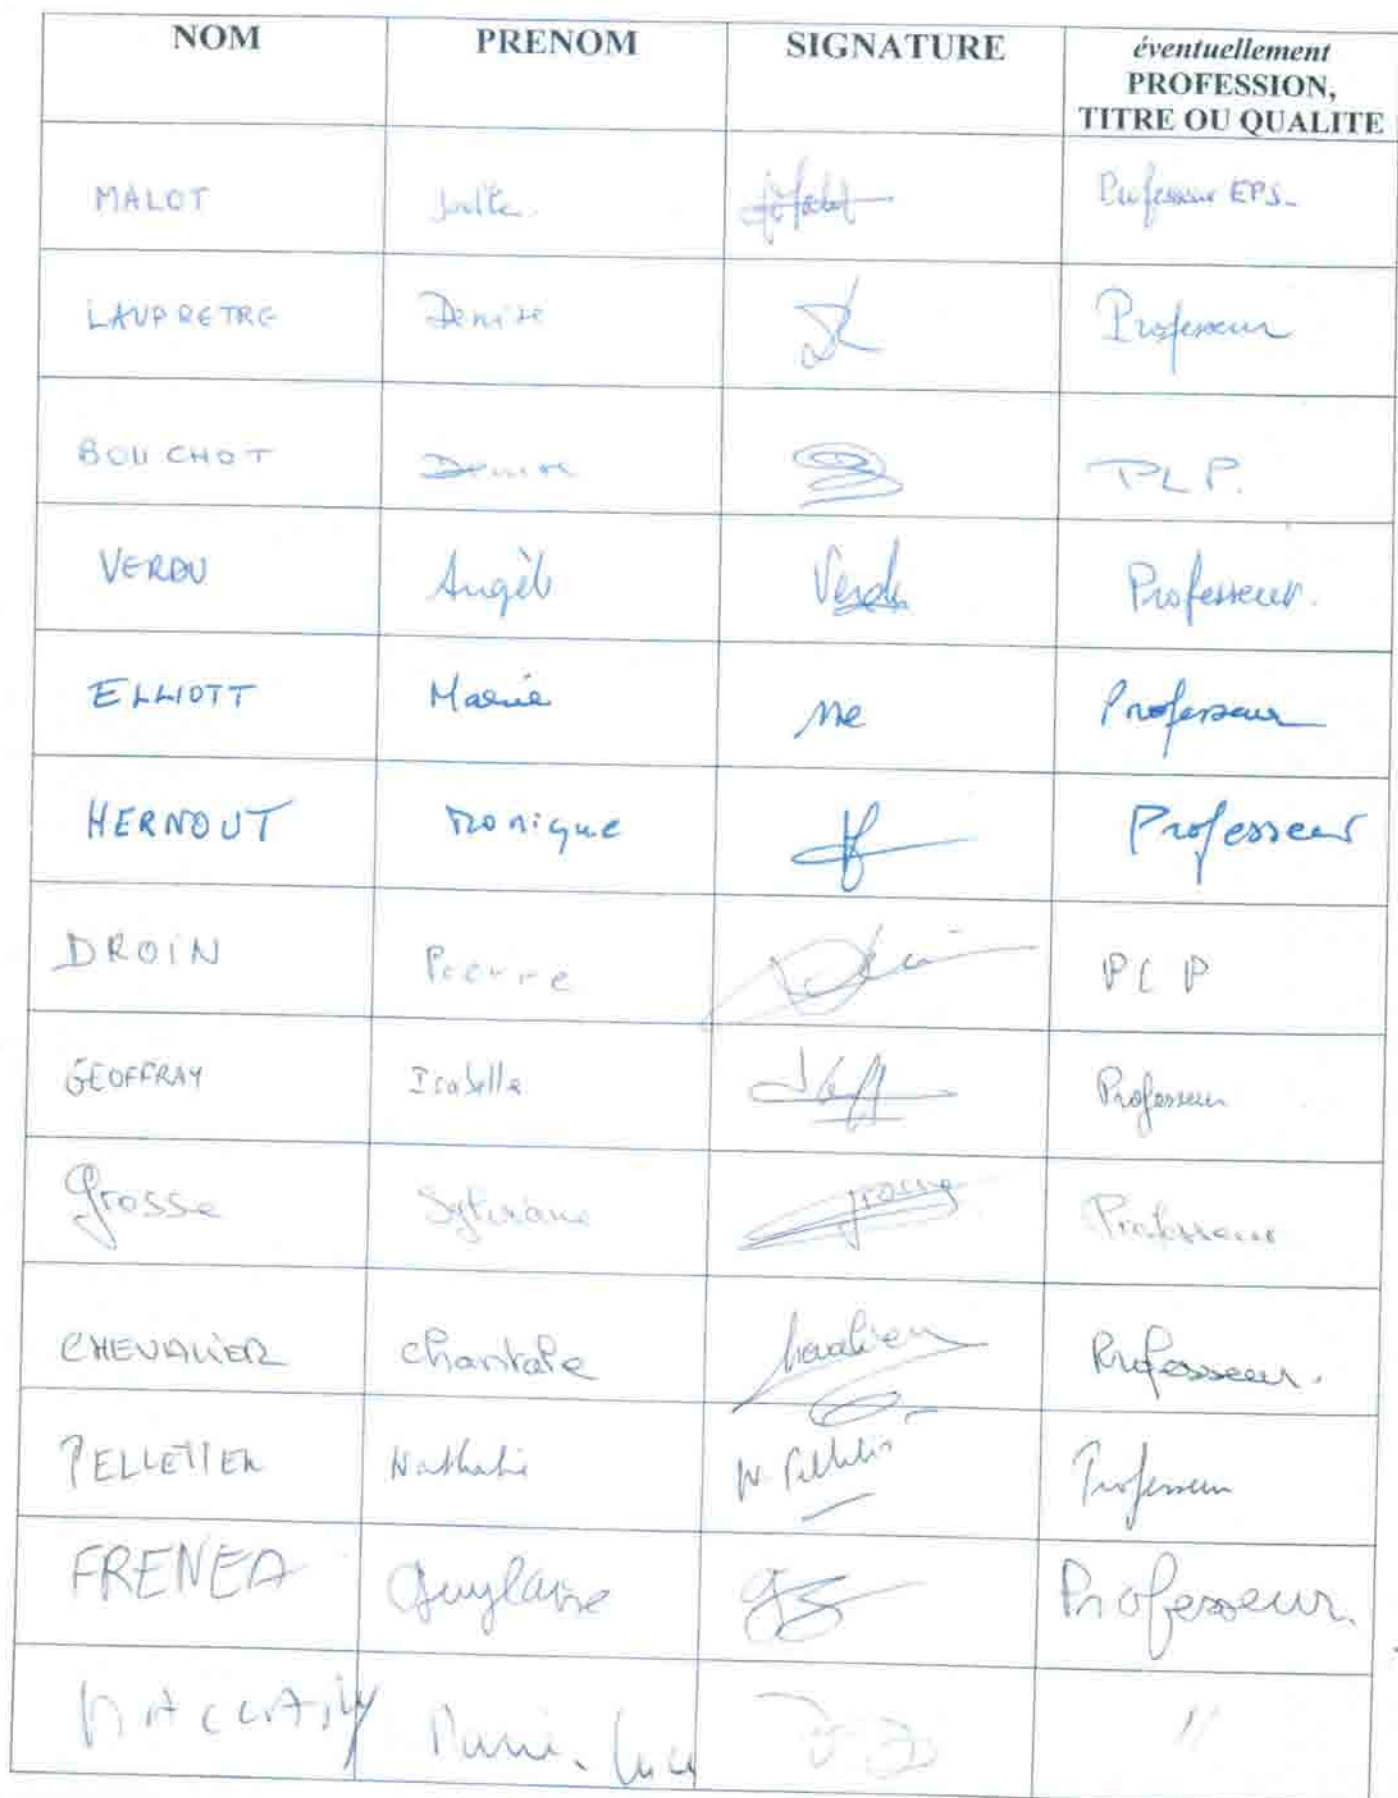 NOM PRENOM SIGNATURE éventuellement
PROFESSION,
TITRE OU QUALITE
MALOT Professeur EPS.
LAUPRETRE Denise Professeur
BOUCHOT Denise PLP.
VERDU Angèle Verdu Professeur.
ELLIOTT Marie ME Professeur
HERNOUT Monique Professeur
DROIN Pierre PLP
GEOFFRAY Isabelle Professeur
Grosse Professeur
CHEVALIER Chantale Professeur.
PELLETIER Nathalie N. Pelletier Professeur
FRENEA Guylaine Professeur.
Marie-Luce "